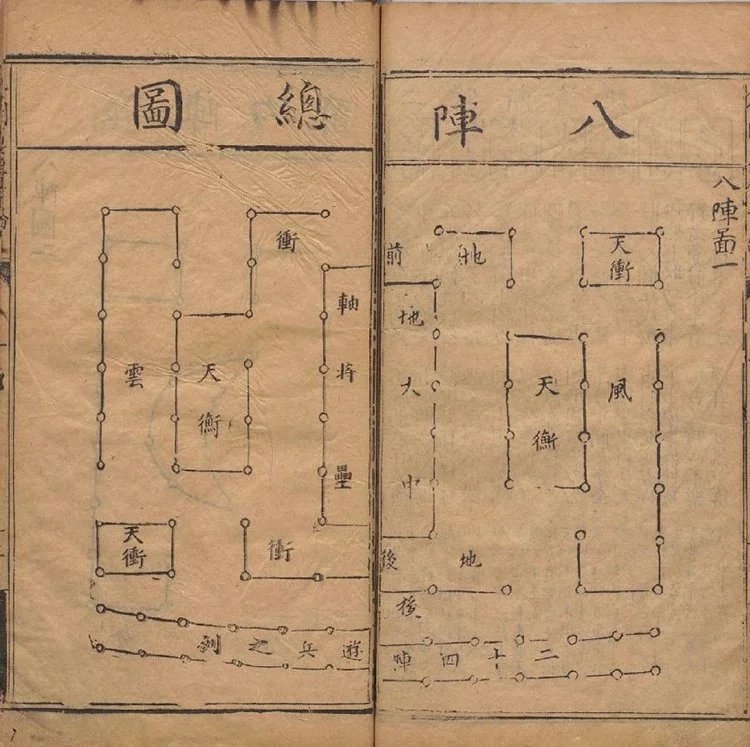 八陣總圖
八陣啚一
天衝
地
前衝
風
天衡
地軸
大將
中壘
天衡
雲
地
後衝
天衝
後
二十四陣
遊兵之列